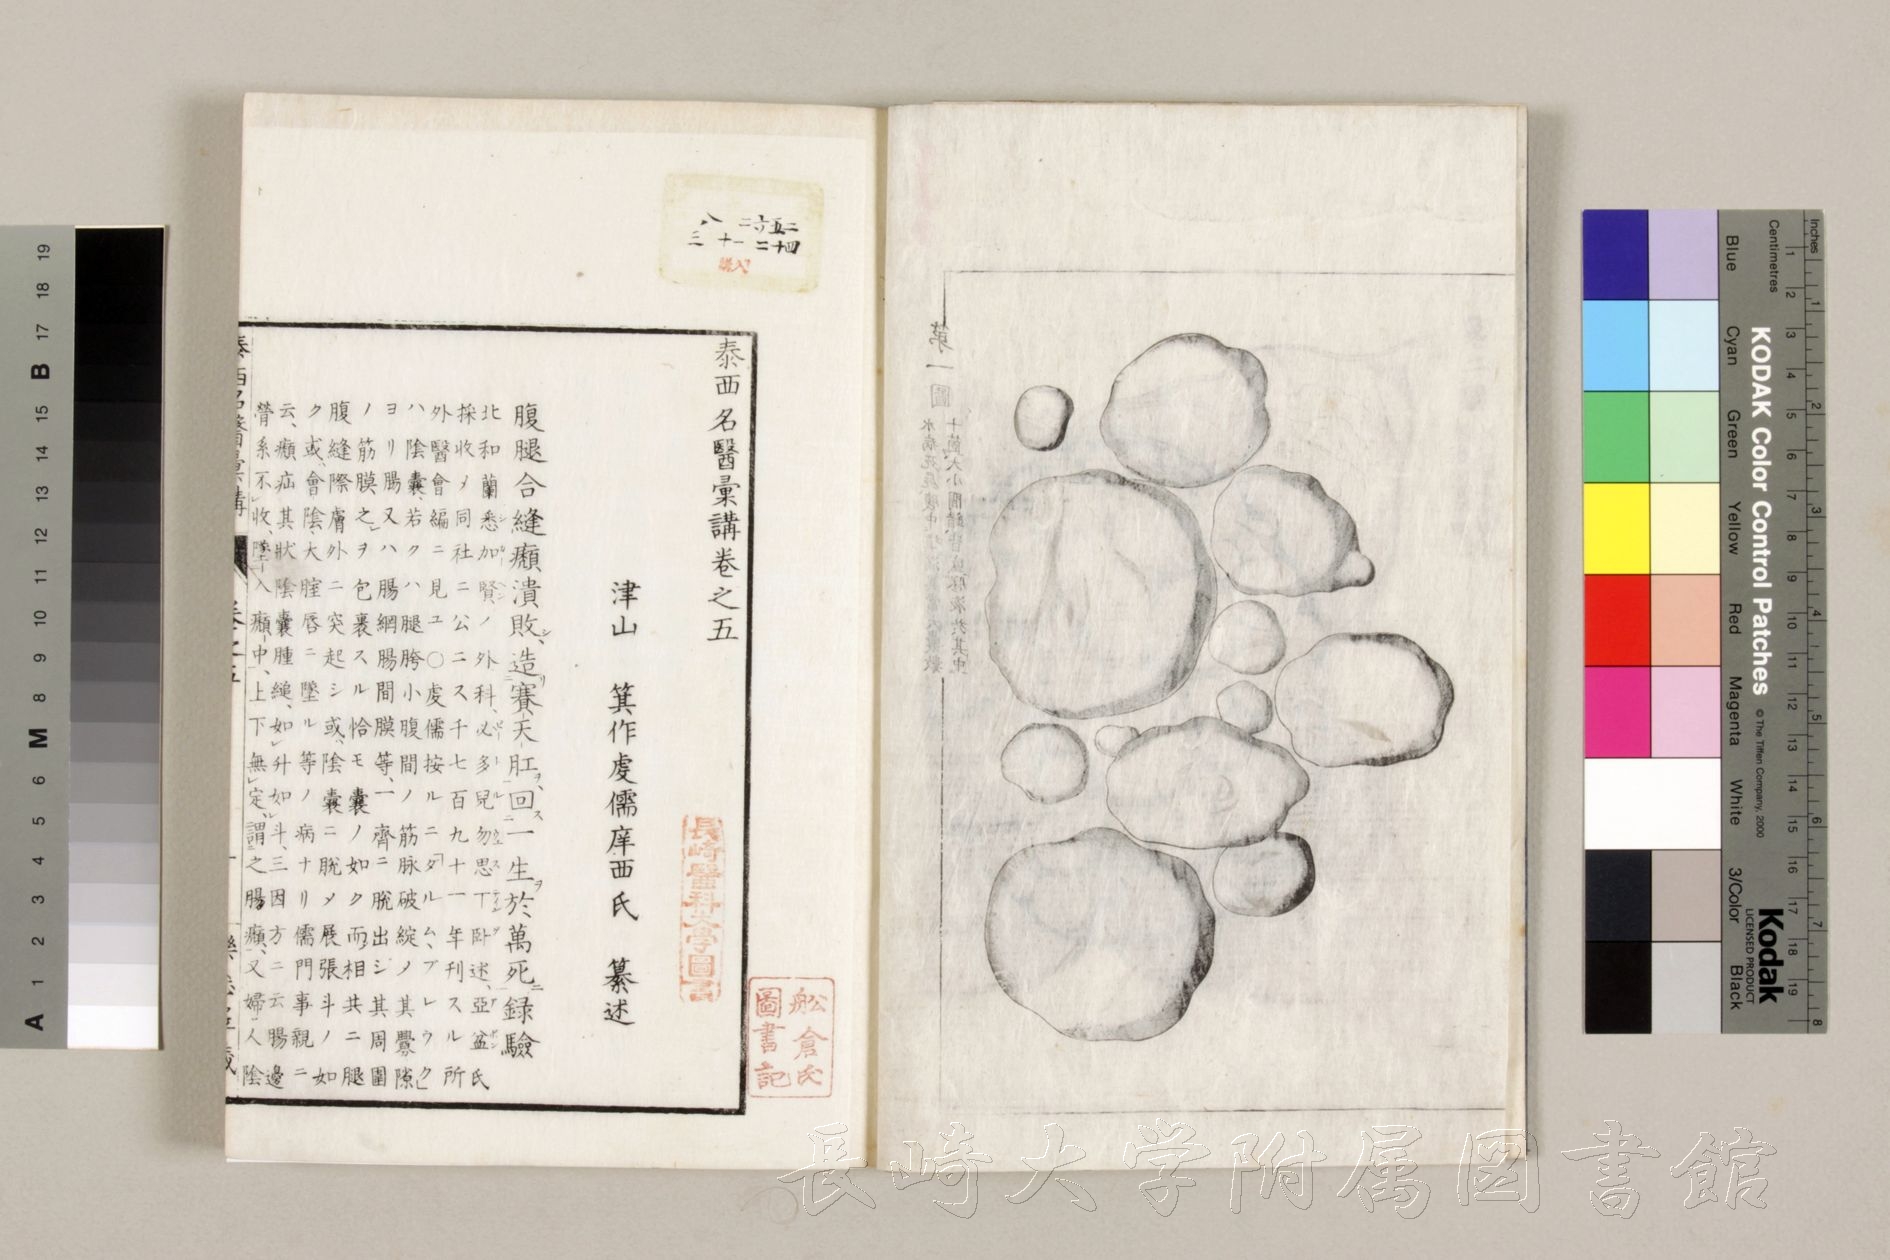 第一圖
泰西名醫彙講卷之五
津山 箕作虔儒庠西氏 纂述
腹腿合縫癩潰敗、造賽天肛、回一生於萬死錄驗
北和蘭悉加賢ノ外科、必多兒勿思丁卧述、亞盆氏
採收ノ同社ニ公ニス千七百九十一年刊スル所
外醫會編ニ見ユ〇虔儒按ルニ「ダルム、ブレウク」
ハ陰囊、若クハ腿胯小腹間ノ筋脉破綻ノ其釁隙
ヨリ腸又ハ腸網腸間膜等、一齊ニ脫出シ其周圍
ノ筋膜之ヲ包裹スル恰モ囊ノ如ク而相共ニ腿
腹縫際膚外ニ突起シ或陰囊ニ脫メ展張斗ノ如
ク或會陰、大腟唇ニ墜ル等ノ病ナリ儒門事親ニ
云、癩疝其狀陰囊腫縋、如升如斗、三因方ニ云腸邊
膋系不收、墜入癩中、上下無定、謂之腸癩、又婦人陰
長崎醫科大學圖書
舩倉氏
圖書記
八 二六五二
三 十一 二十四
購入
長崎大学附属図書館
KODAK Color Control Patches
© The Tiffen Company, 2000
Kodak
LICENSED PRODUCT
Inches
Centimetres
Blue
Cyan
Green
Yellow
Red
Magenta
White
3/Color
Black
1 2 3 4 5 6 7 8
1 2 3 4 5 6 7 8 9 10 11 12 13 14 15 16 17 18 19
A 1 2 3 4 5 6 M 8 9 10 11 12 13 14 15 B 17 18 19